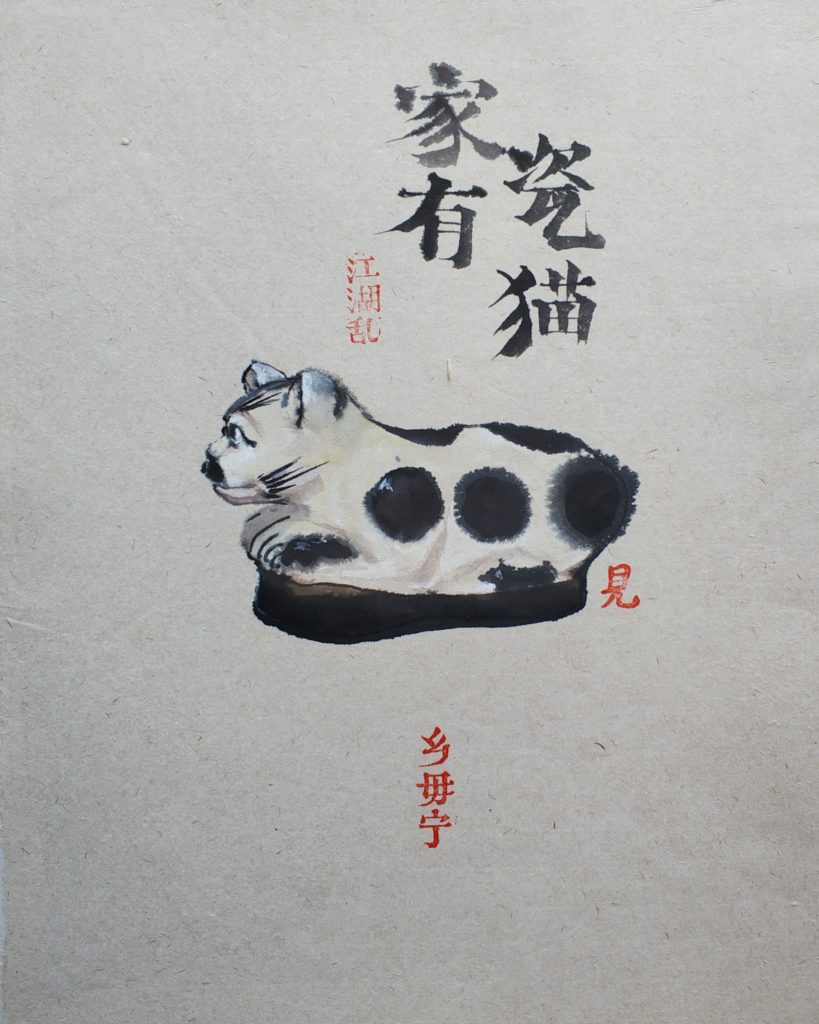 家有
瓷猫
江湖乱
見
乡毋宁